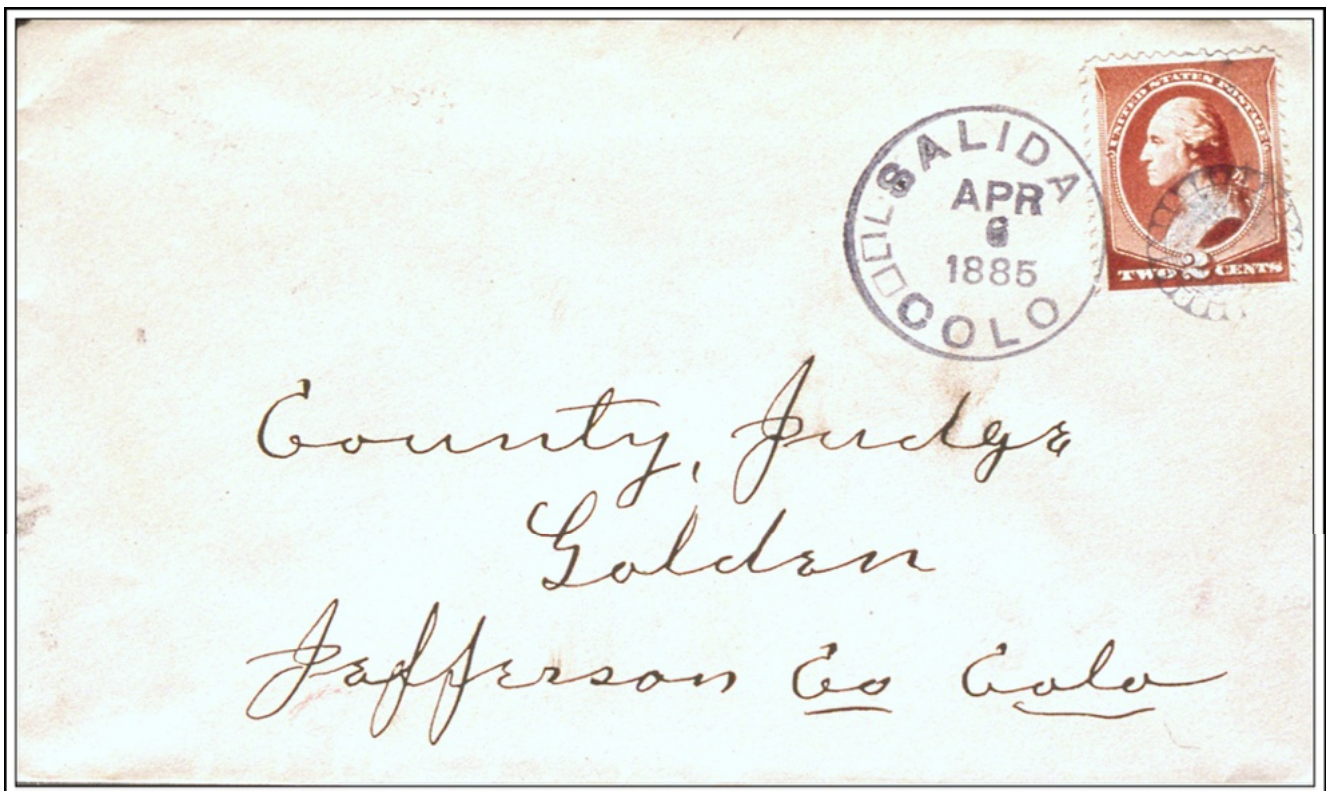 SALIDA
APR
6
1885
COLO
UNITED STATES POSTAGE
TWO 2 CENTS
County, Judge
Golden
Jefferson Co Colo